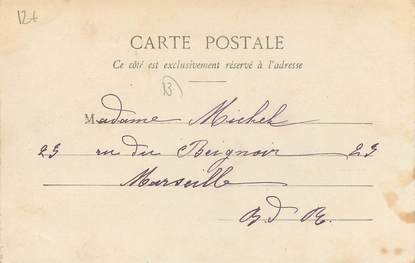 12+
CARTE POSTALE
Ce côté est exclusivement réservé à l'adresse
Madame Michel
23 rue du Baignoir 23
Marseille
B. d R.